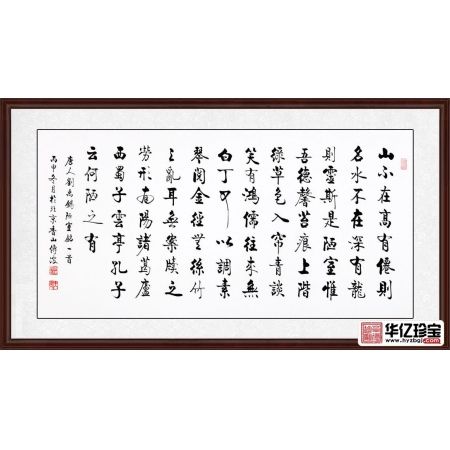 山不在高有僊則
名水不在深有龍
則靈斯是陋室惟
吾德馨苔痕上階
綠草色入帘青談
笑有鴻儒往來無
白丁可以調素
琴閱金經無絲竹
之亂耳無案牘之
勞形南陽諸葛廬
西蜀子雲亭孔子
云何陋之有
唐人劉禹錫陋室銘一首
丙申冬月於北京香山
华亿珍宝
www.hyzbgj.com